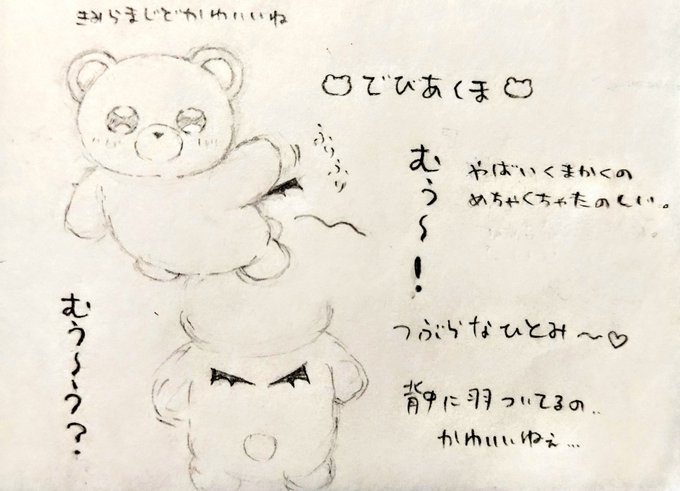 きみらまじでかわいいね
でびあくま
ふりふり
むぅ〜!
やばいくまかくの
めちゃくちゃたのしい。
つぶらなひとみ〜♡
むぅ〜う?
背中に羽ついてるの..
かわいいねぇ...